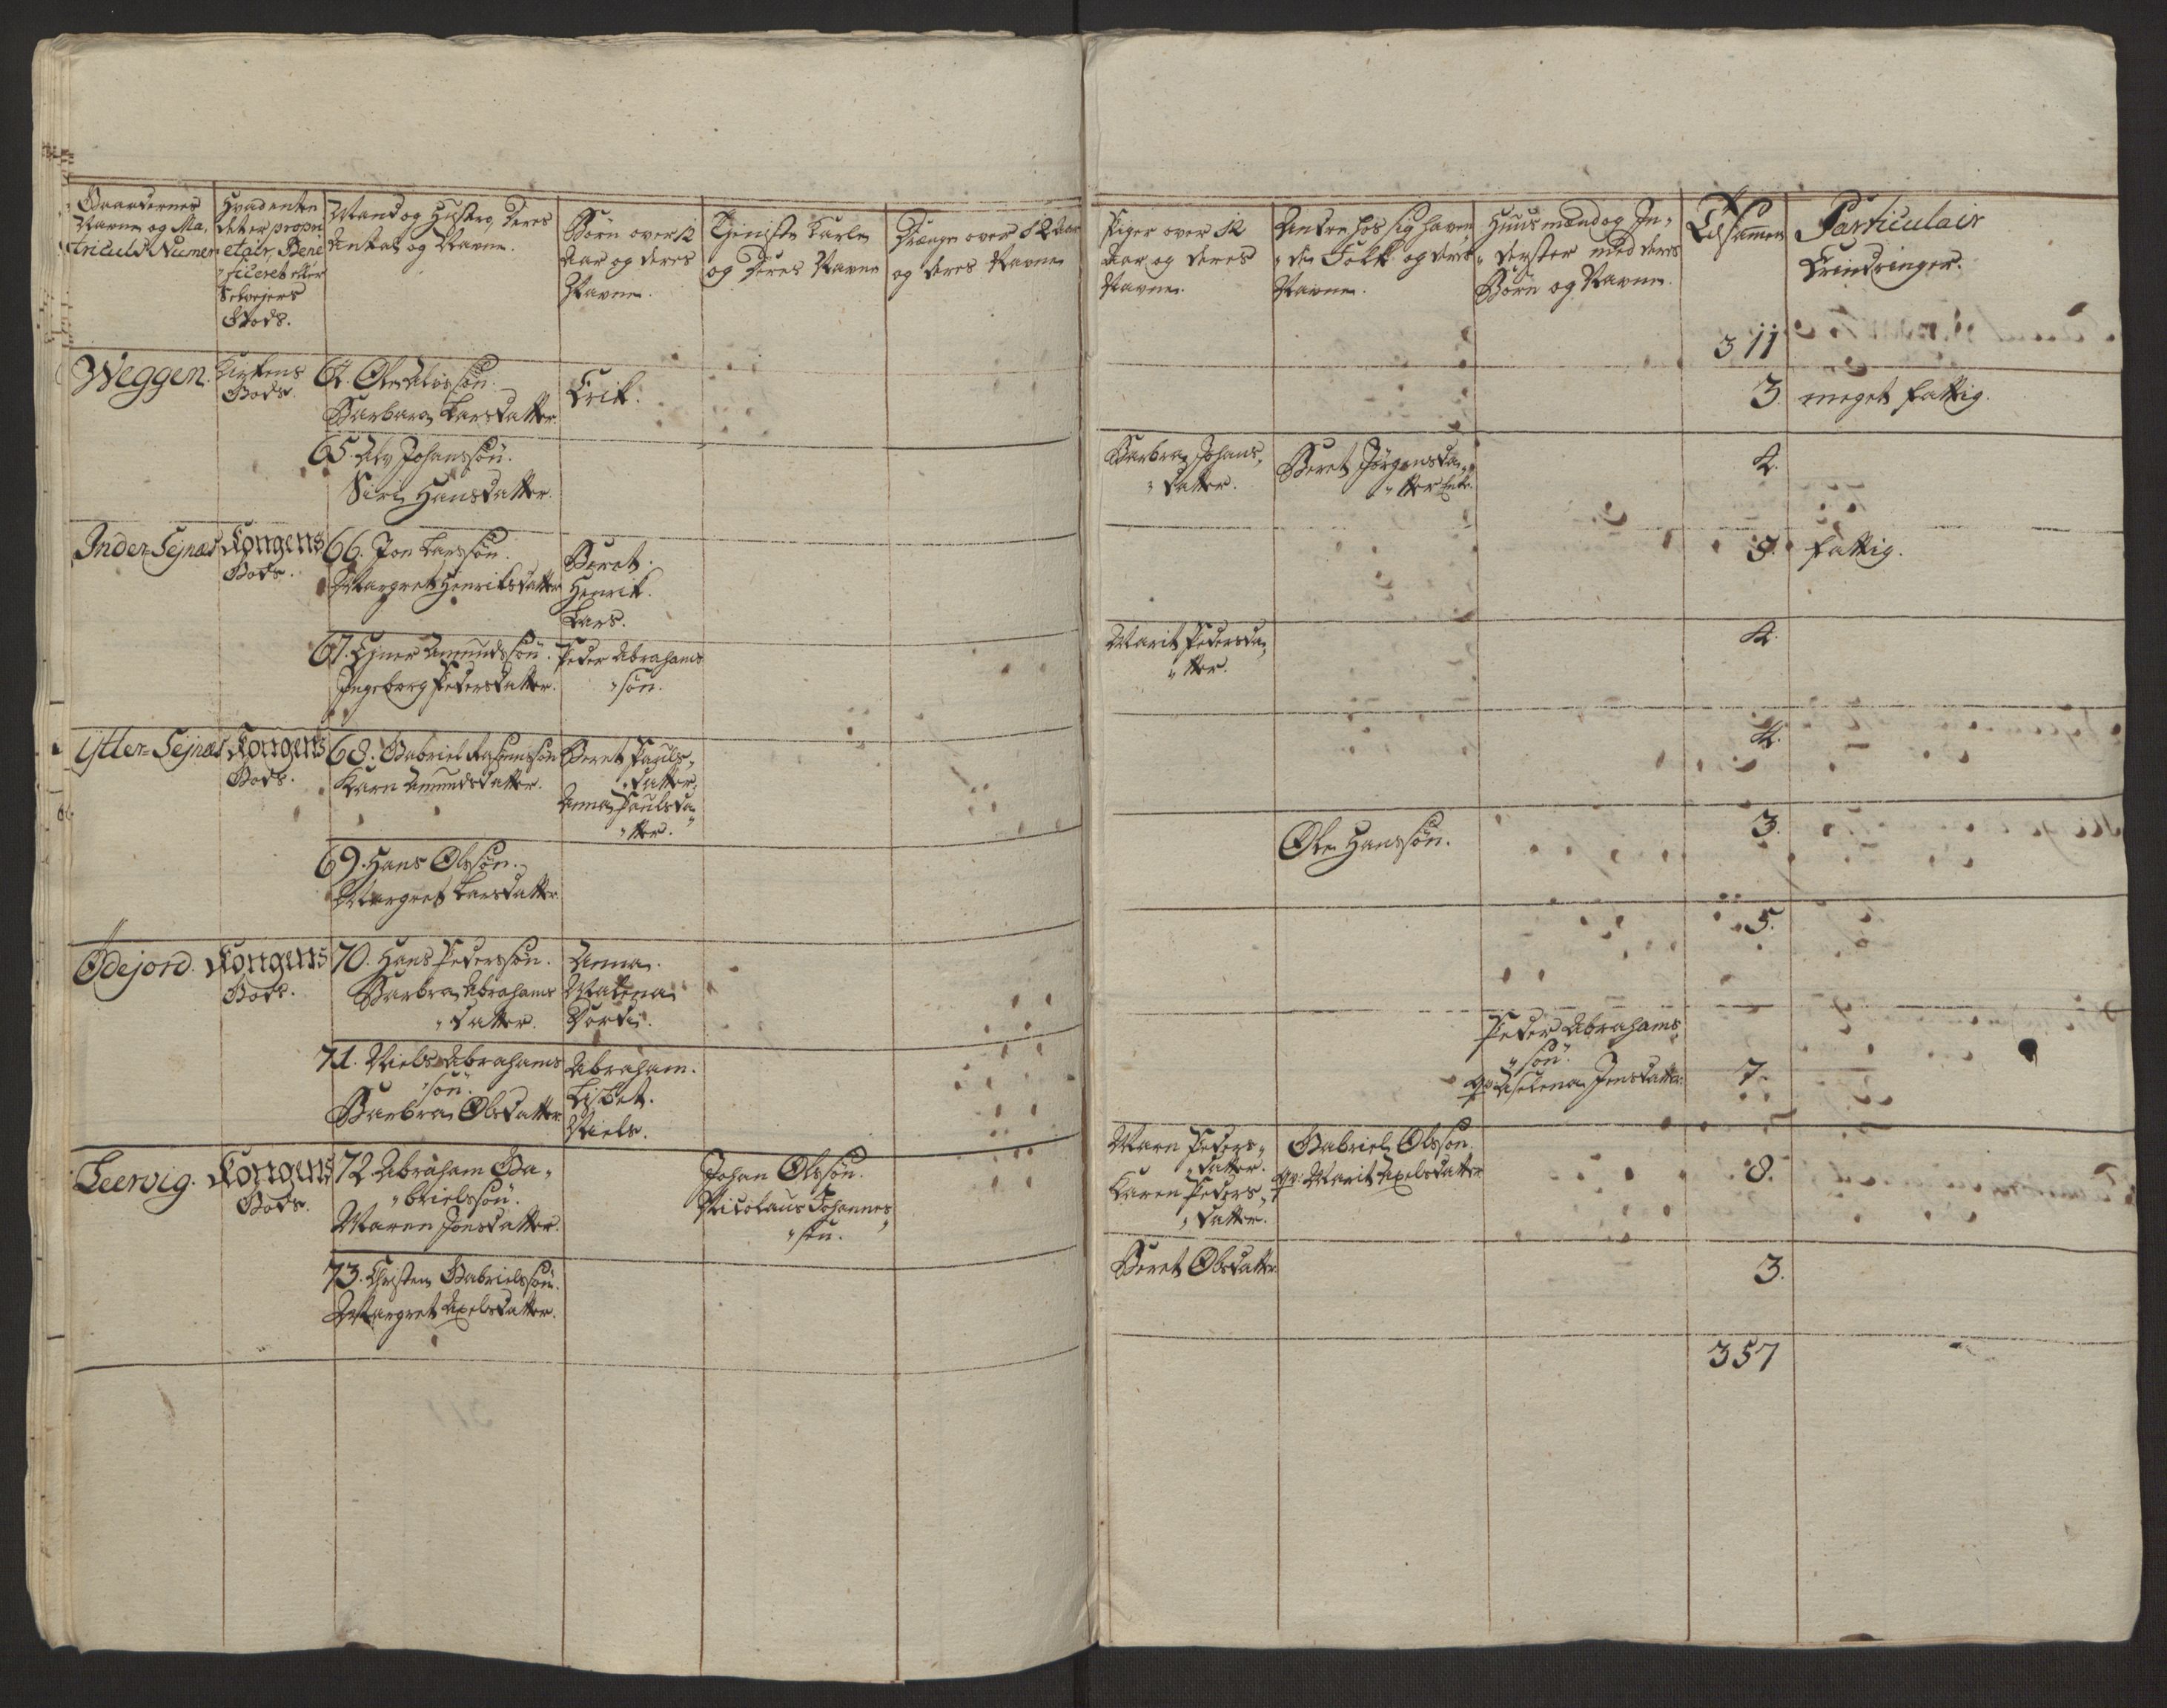 Gaardernes
Navne og Ma-
triculs Numer
Hvad enten
det er propri
etair, Bene
ficeret eller
Selvejers
Gods.
Mand og Hustro, Deres
Antal og Navne.
Börn over 12
Aar og deres
Navne.
Tjeniste Karle
og Deres Navne
Drænge over 12 Aar
og deres Navne
Piger over 12
Aar og deres
Navne.
Andre hos sig haven
de Folk og deres
Navne.
Huusmænd og In-
derster med deres
Börn og Navne.
Tilsammen
Particulair
Erindringer.
311
Weggen.
Kirkens
Gods.
64. Ole Alvssøn.
Barbara Larsdatter.
Erik.
3.
meget fattig.
65. Alv Johanssøn.
Siri Hansdatter.
Barbra Johans-
datter.
Beret Jörgensda-
tter Enke.
4.
Inder-Sejnæs
Kongens
Gods.
66. Jon Larssøn.
Margret Henriksdatter
Beret.
Henrik.
Lars.
5.
fattig.
67. Ejner Amundssøn.
Ingeborg Pedersdatter.
Peder Abrahams
søn.
Marit Pedersda-
tter.
4.
Ytter-Sejnæs
Kongens
Gods.
68. Gabriel Rasmussøn
Karn Amundsdatter.
Beret Pauls-
datter.
Anna Paulsda-
tter.
4.
69. Hans Olssøn.
Margret Larsdatter.
Ole Hanssøn.
3.
Ödejord.
Kongens
Gods.
70. Hans Pederssøn.
Barbra Abrahams
datter.
Anna.
Malena.
Dorde.
5.
71. Niels Abrahams
søn.
Barbra Olsdatter
Abraham.
Lisbet.
Niels.
Peder Abrahams
søn.
qv. Aselena Jensdatter.
7.
Leervig.
Kongens
Gods.
72 Abraham Ga-
brielssøn.
Maren Jonsdatter.
Johan Olssøn.
Nicolaus Johannes
søn.
Marn Peders-
datter.
Karen Peders-
datter.
Gabriel Olssøn.
qv. Marit Axelsdatter
8.
73. Christen Gabrielssøn.
Margret Axelsdatter.
Beret Olsdatter
3.
357